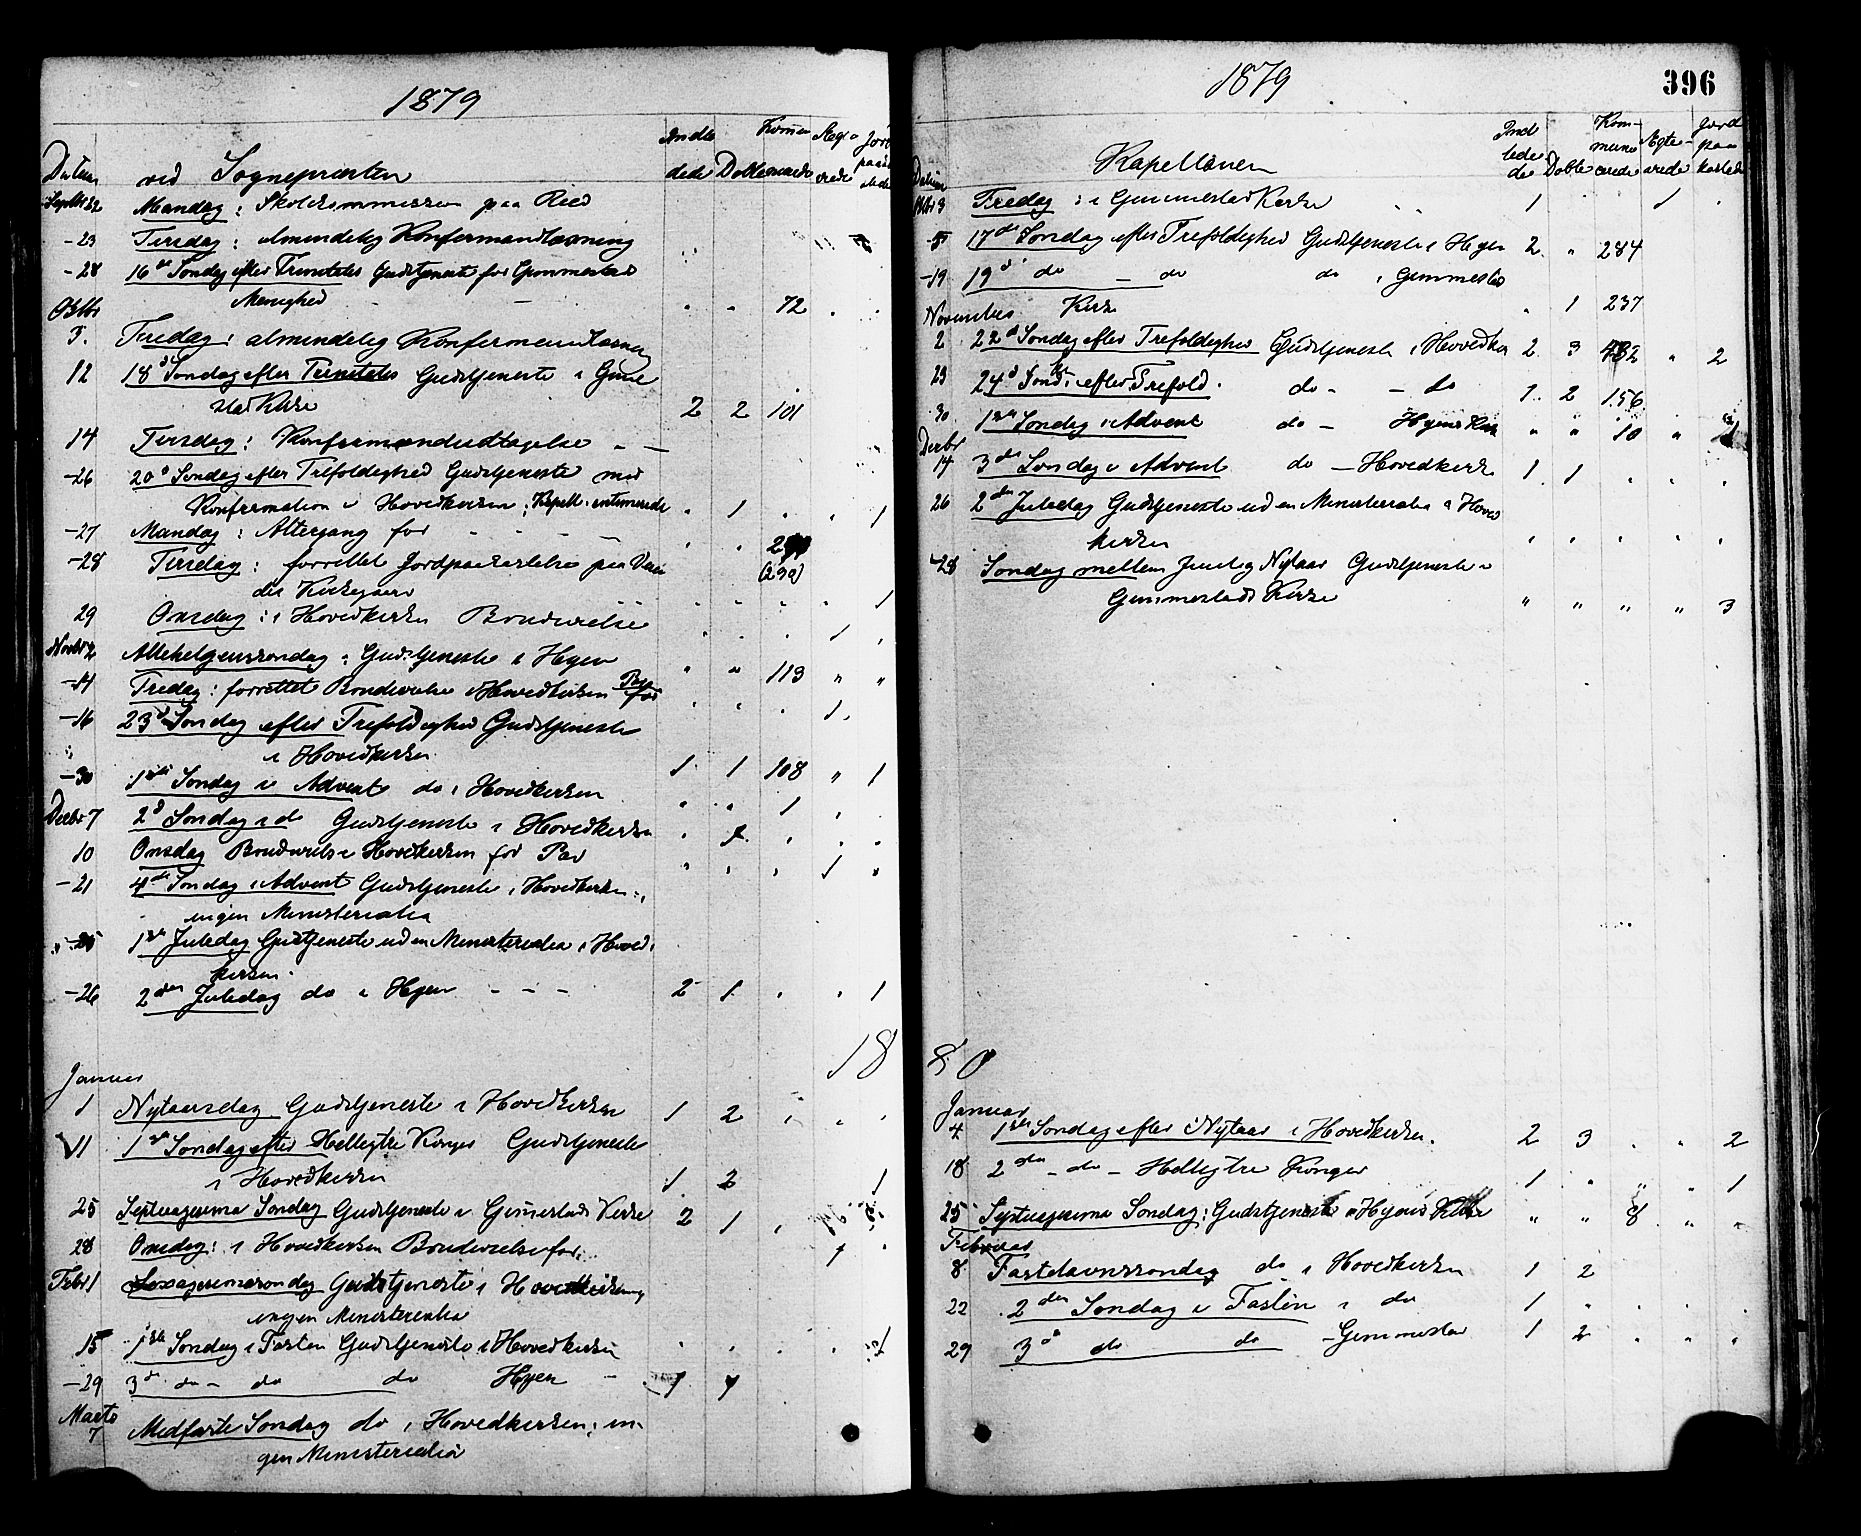 1879
Datum ved Sognepræsten Indledede Døbte Kommunicerede Ægteviede Jordpaakastede
Septbr 22 Mandag: Skolekommission paa Reed
-23 Tirsdag: almindelig Konfirmandlæsning
-28 16de Søndag efter Trinitatis Gudstjeneste for Gimmestad
Menighed " " 72 " "
Oktbr
3. Fredag: almindelig Konfirmandlæsning
12 18de Søndag efter Trinitatis Gudstjeneste i Gimme
stad Kirke 2 2 101
14 Tirsdag: Konfirmandudtagelse - -
-26 20de Søndag efter Trefoldighed Gudstjeneste med
Konfirmation i Hovedkirken; Kapell. intimerede " 1 " " 1
-27 Mandag: Altergang for - - - " "
-28 Tirsdag: forrettet Jordpaakastelse paa Vereidets (290)
Kirkegaard " " " " 1
29 Onsdag: i Hovedkirken Brudevielse " " " 1 "
Novbr 2 Allehelgenssøndag: Gudstjeneste i Hyen " " 113 " "
-14 Fredag: forrettet Brudevielse i Hovedkirken for Par " " " 1 "
-16 23de Søndag efter Trefoldighed Gudstjeneste
i Hovedkirken 1 1 108 " 1
-30 1ste Søndag i Advent do i Hovedkirken " " 1 "
Decbr 7 2den Søndag i do Gudstjeneste i Hovedkirken
10 Onsdag Brudevielse i Hovedkirken for Par " " " 1 "
-21 4de Søndag i Advent Gudstjeneste i Hovedkirken;
ingen Ministerialia
-25 1ste Juledag Gudstjeneste uden Ministerialia i Hoved-
kirken.
-26 2den Juledag do i Hyen - - - 2 1 " " 1
18
Januar
1 Nytaarsdag Gudstjeneste i Hovedkirken 1 2 " " "
11 1ste Søndag efter Helligtre Konger Gudstjeneste
i Hovedkirken 1 2 1
25 Septuagesima Søndag Gudstjeneste i Gimmestads Kirke 2 1
28 Onsdag: i Hovedkirken Brudevielse for 1 "
Febr 1 Sexagesimasøndag Gudstjeneste i Hovedkirken;
ingen Ministerialia
15 1ste Søndag i Fasten Gudstjeneste i Hovedkirken " " " " 1
-29 3de do - do do Hyen - 1 1
Marts
7 Midfaste Søndag do i Hovedkirken; in-
gen Ministerialia
1879
396
Datum Kapellanen Indledede Døbte Kommunicerede Ægteviede Jordpaakastede
Oktbr 3 Fredag: i Gimmestad Kirke 1 " " 1 "
-5 17de Søndag efter Trefoldighed Gudstjeneste i Hyen 2 " 284
-19 19de do - do do i Gimmestad
Kirke " 1 237
November
2 22de Søndag efter Trefoldighed Gudstjeneste i Hovedkir 2 3 " 2
23 24de Sønd. efter Trefold. do - - do 1 2 156
30 1ste Søndag i Advent do - Hyens Kirke " " 10 "
Decbr
14 3die Søndag i Advent do - Hovedkirke 1 1 " " "
26 2den Juledag Gudstjeneste uden Ministerialia i Hoved
kirken " " " " "
-28 Søndag mellem Jul og Nytaar Gudstjeneste i
Gimmestads Kirke " " " " 3
80
Januar
4 1ste Søndag efter Nytaar i Hovedkirken. 2 3 " " 2
18 2den - do - Helligtre Konger 1 " " " 1
25 Septuagesima Søndag: Gudstjeneste i Hyens Kirke " " 8 " "
Februar
8 Fastelavnssøndag do i Hovedkirken 1 2
22 2den Søndag i Fasten i do 1 " " " "
29 3die do do - Gimmestad 1 2 " " "